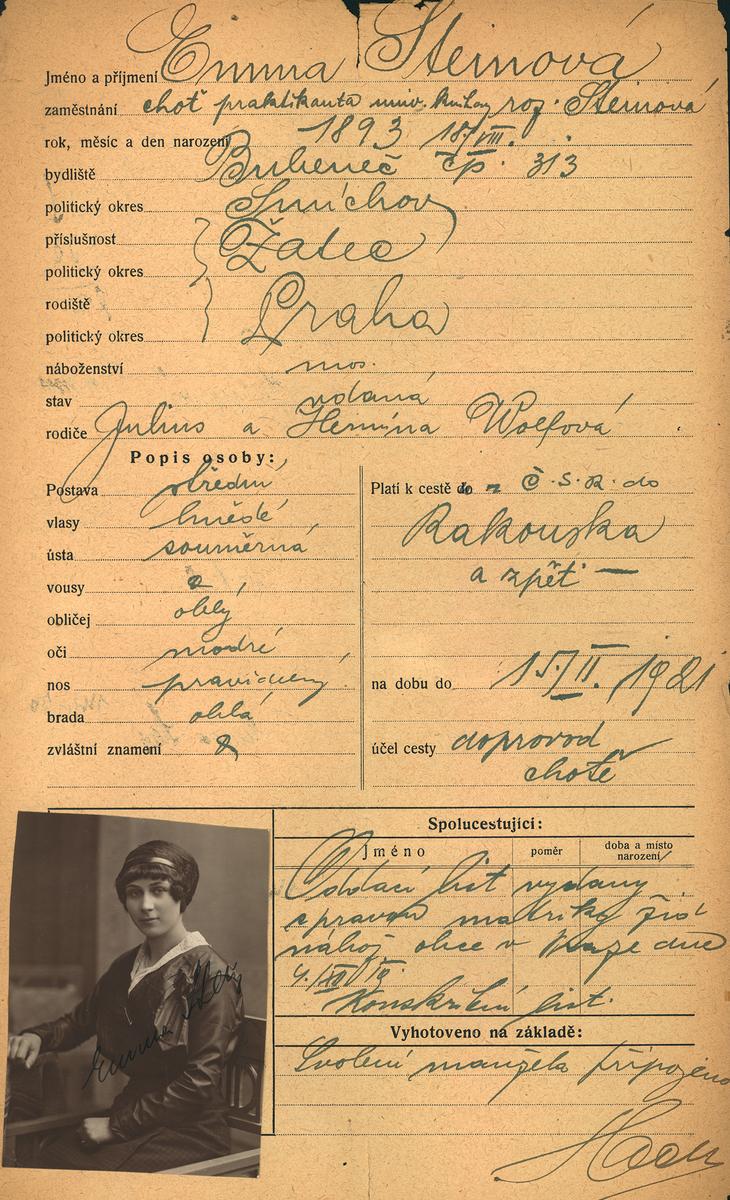 Jméno a příjmení Emma Steinová
zaměstnání choť praktikanta univ. knihov. roz. Steinová
rok, měsíc a den narození 1893 18/VIII.
bydliště Bubeneč čp. 313
politický okres Smíchov
příslušnost Žatec
politický okres
rodiště Praha
politický okres
náboženství mos.
stav vdaná
rodiče Julius a Hermína Wolfová
Popis osoby:
Postava střední
vlasy hnědé
ústa souměrná
vousy
obličej oblý
oči modré
nos pravidelný
brada oblá
zvláštní znamení
Platí k cestě do z Č.S.R. do
Rakouska
a zpět —
na dobu do 15/II. 1921
účel cesty doprovod
chotě
Spolucestující:
Jméno poměr doba a místo narození
Oddací list vydaný
správou matriky žid.
nábož. obce v Praze dne
Konskribční list.
Vyhotoveno na základě:
Svolení manžela připojeno
Emma Stein